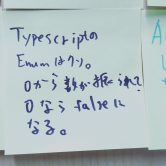 Typescriptの
Enumはクソ。
0から数が振られ?
0なら falseに
なる。
A